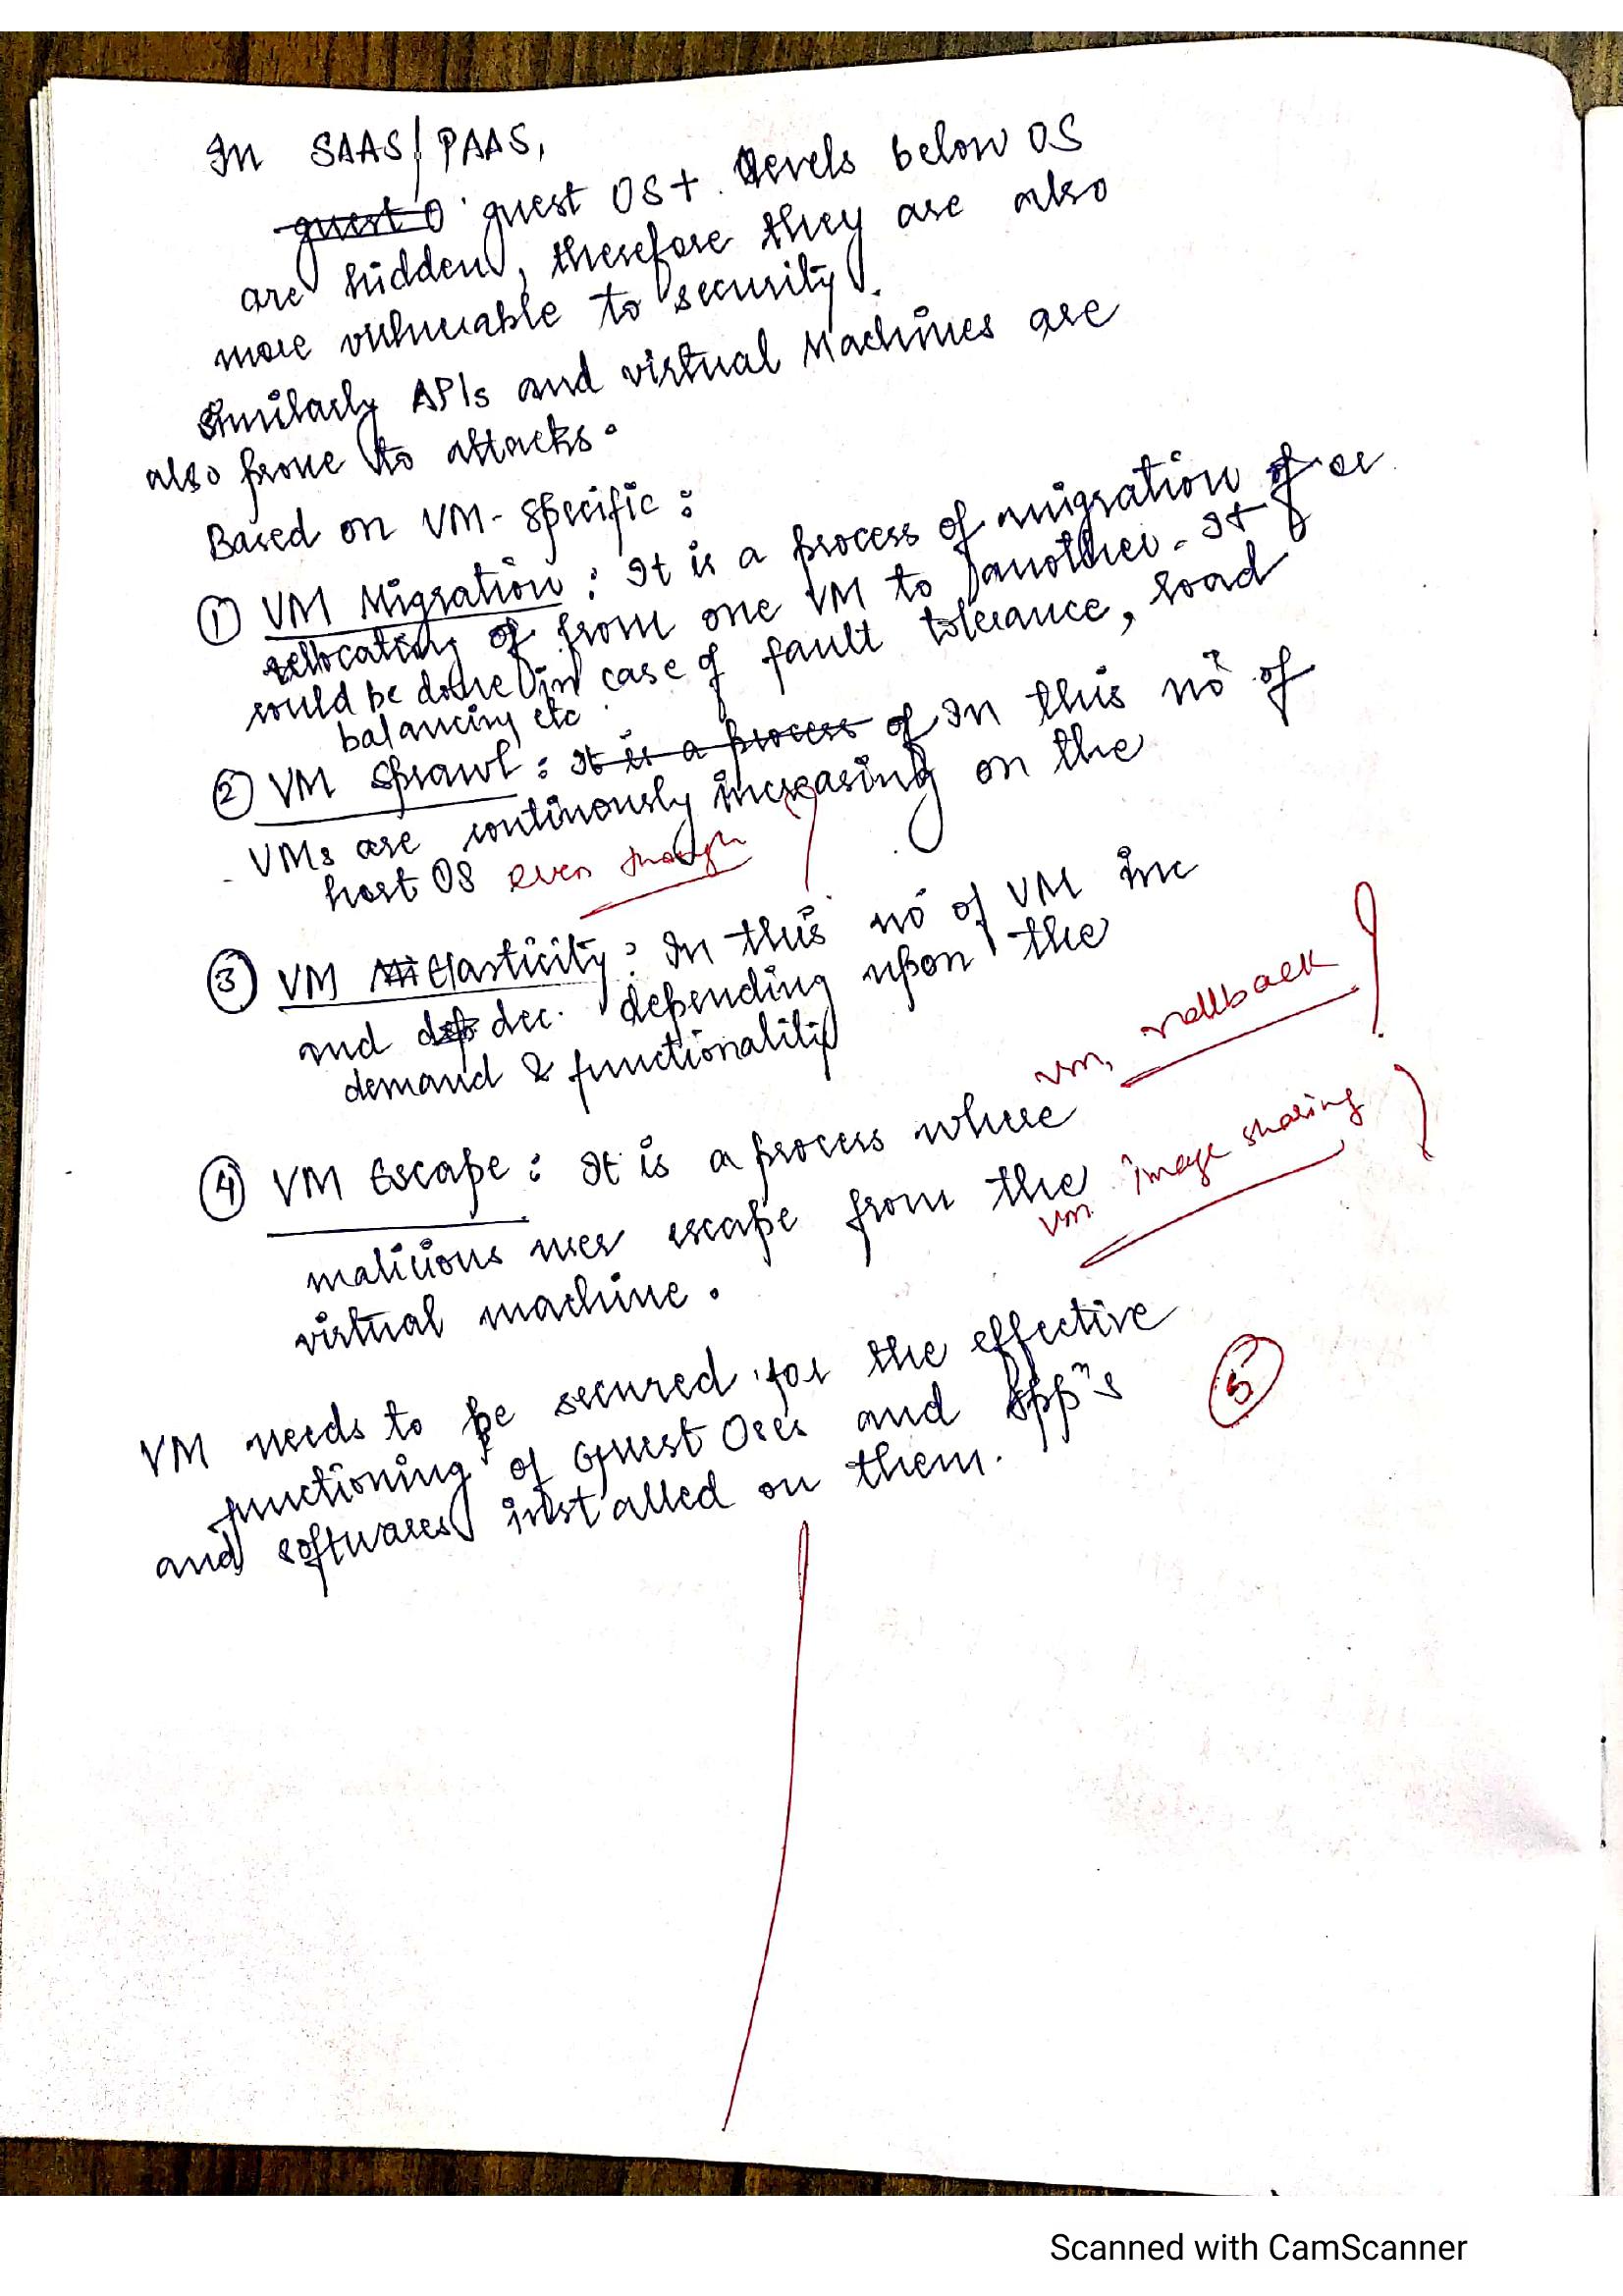 In SAAS/PAAS,
guest O guest OS + levels below OS
are hidden, therefore they are also
more vulnerable to security.
Similarly APIs and virtual Machines are
also prone to attacks.
Based on VM-specific:
① VM Migration: It is a process of migration of or
rellocating of from one VM to another. It
could be done in case of fault tolerance, load
balancing etc
② VM Sprawl: It is a process of In this no of
VMs are continously increasing on the
host OS even though
③ VM Elasticity: In this no of VM inc
and dec. depending upon the
demand & functionality
vm, rollback
④ VM Escape: It is a process where
vm. image sharing
malicious user escape from the
virtual machine.
VM needs to be secured for the effective
functioning of Guest OSes and Appⁿs
5
and softwares installed on them.
Scanned with CamScanner